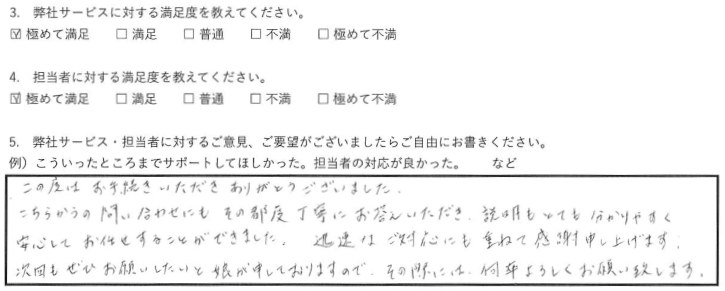 3. 弊社サービスに対する満足度を教えてください。
☑ 極めて満足 ☐ 満足 ☐ 普通 ☐ 不満 ☐ 極めて不満
4. 担当者に対する満足度を教えてください。
☑ 極めて満足 ☐ 満足 ☐ 普通 ☐ 不満 ☐ 極めて不満
5. 弊社サービス・担当者に対するご意見、ご要望がございましたらご自由にお書きください。
例）こういったところまでサポートしてほしかった。担当者の対応が良かった。 など
この度は お手続きいただき ありがとうございました.
こちらからの 問い合わせにも その都度 丁寧に お答えいただき、説明も とても 分かりやすく
安心して お任せすることができました。 迅速な ご対応にも 重ねて 感謝申し上げます.
次回も ぜひ お願いしたいと 娘が申しておりますので、その際には、何卒よろしくお願い致します。